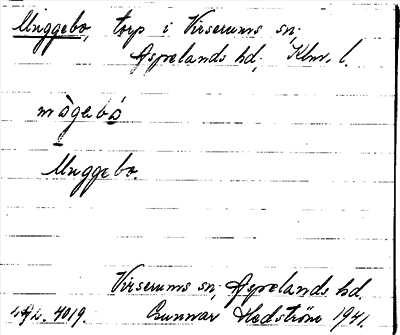 Muggebo, torp i Virserums sn;
Aspelands hd; Klmr. l.
mògebò
Muggebo.
Virserums sn; Aspelands hd.
4019. Gunnar Hedström 1941.